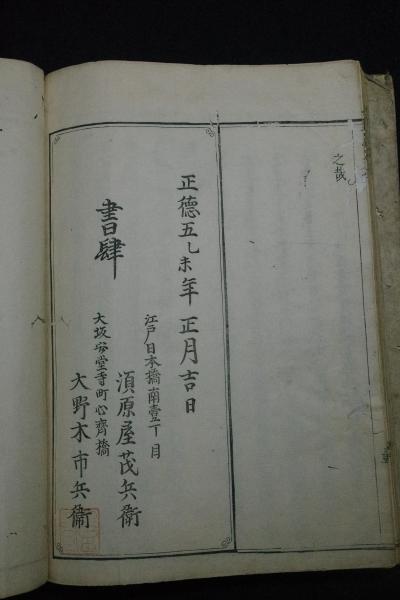 之哉
正德五乙未年正月吉日
江戸日本橋南壹丁目
須原屋茂兵衛
書肆
大坂安堂寺町心齊橋
大野木市兵衛